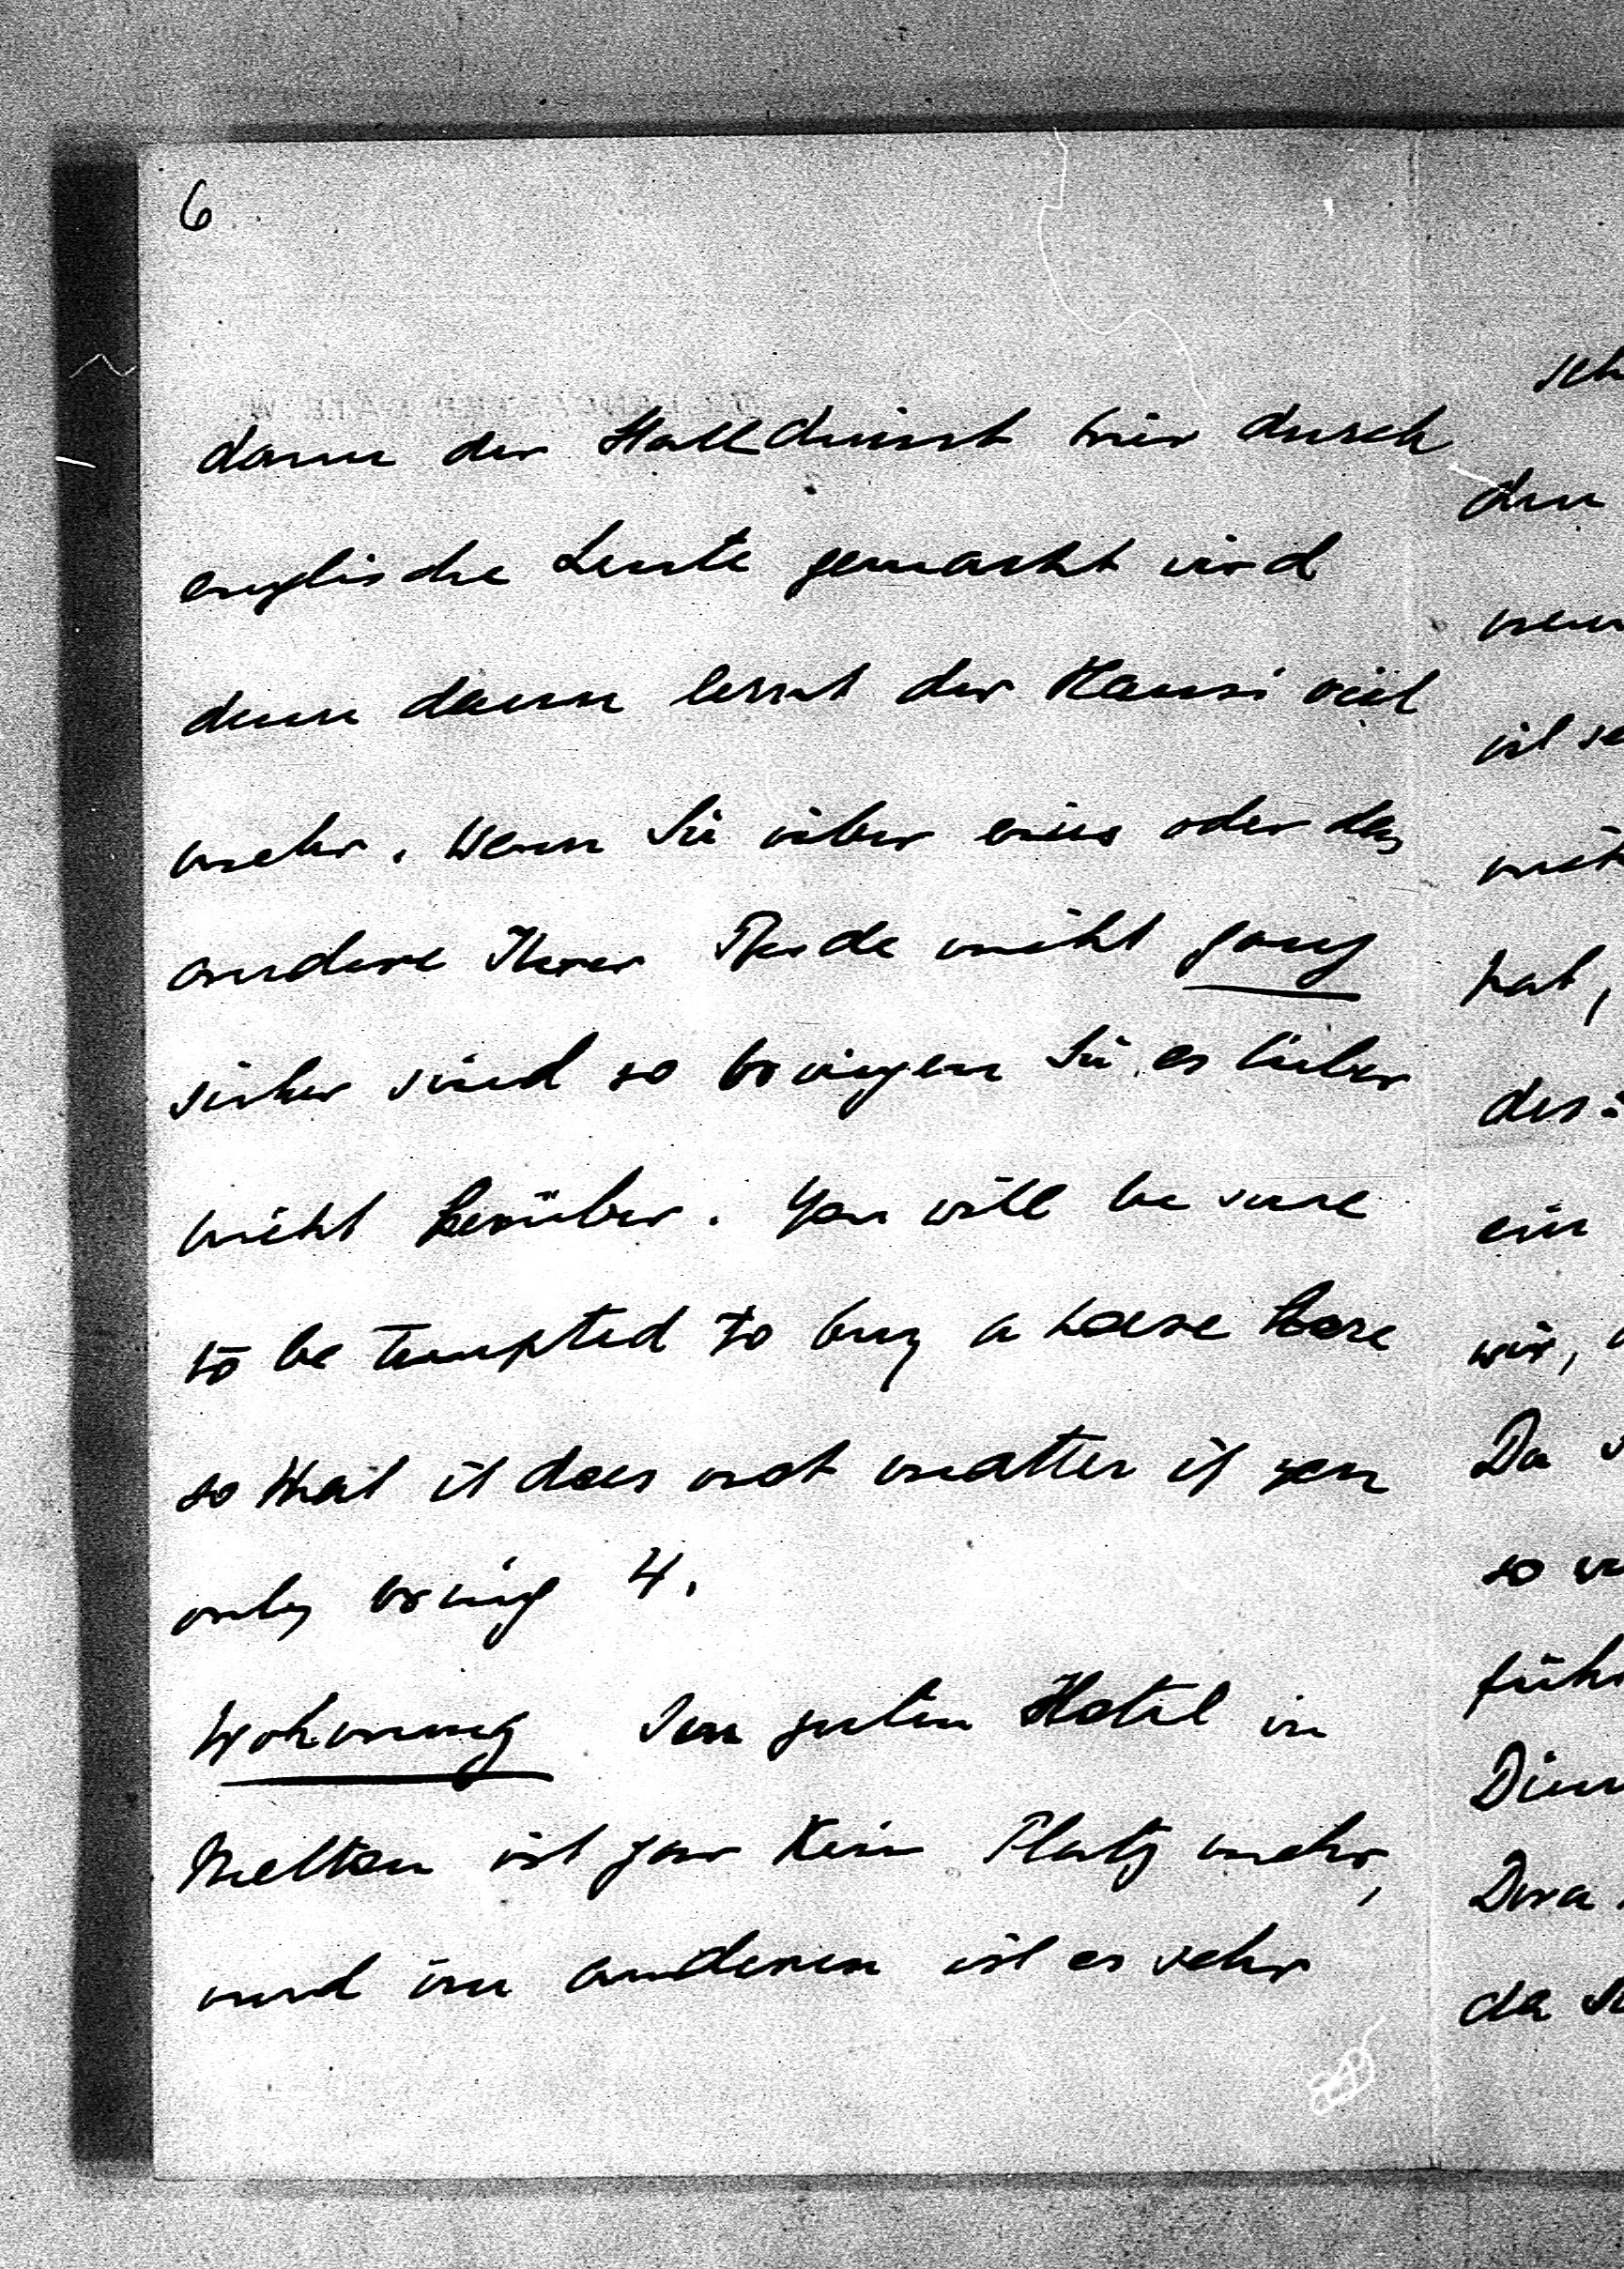 6
dann der Stalldienst hier durch
englische Leute gemacht wird
denn dann lernt der Hansi viel
mehr. Wenn Sie über eines oder das
andere Ihrer Pferde nicht ganz
sicher sind so bringen Sie es lieber
nicht herüber. You will be sure
to be tempted to buy a horse here
so that it does not matter if you
only bring 4.
Wohnung Im guten Hotel in
Melton ist gar kein Platz mehr,
und im anderen ist es sehr
sch
den
wenn
ist se
hat,
des-
ein
wir,
Da
so
führ
Dien
Dora
da